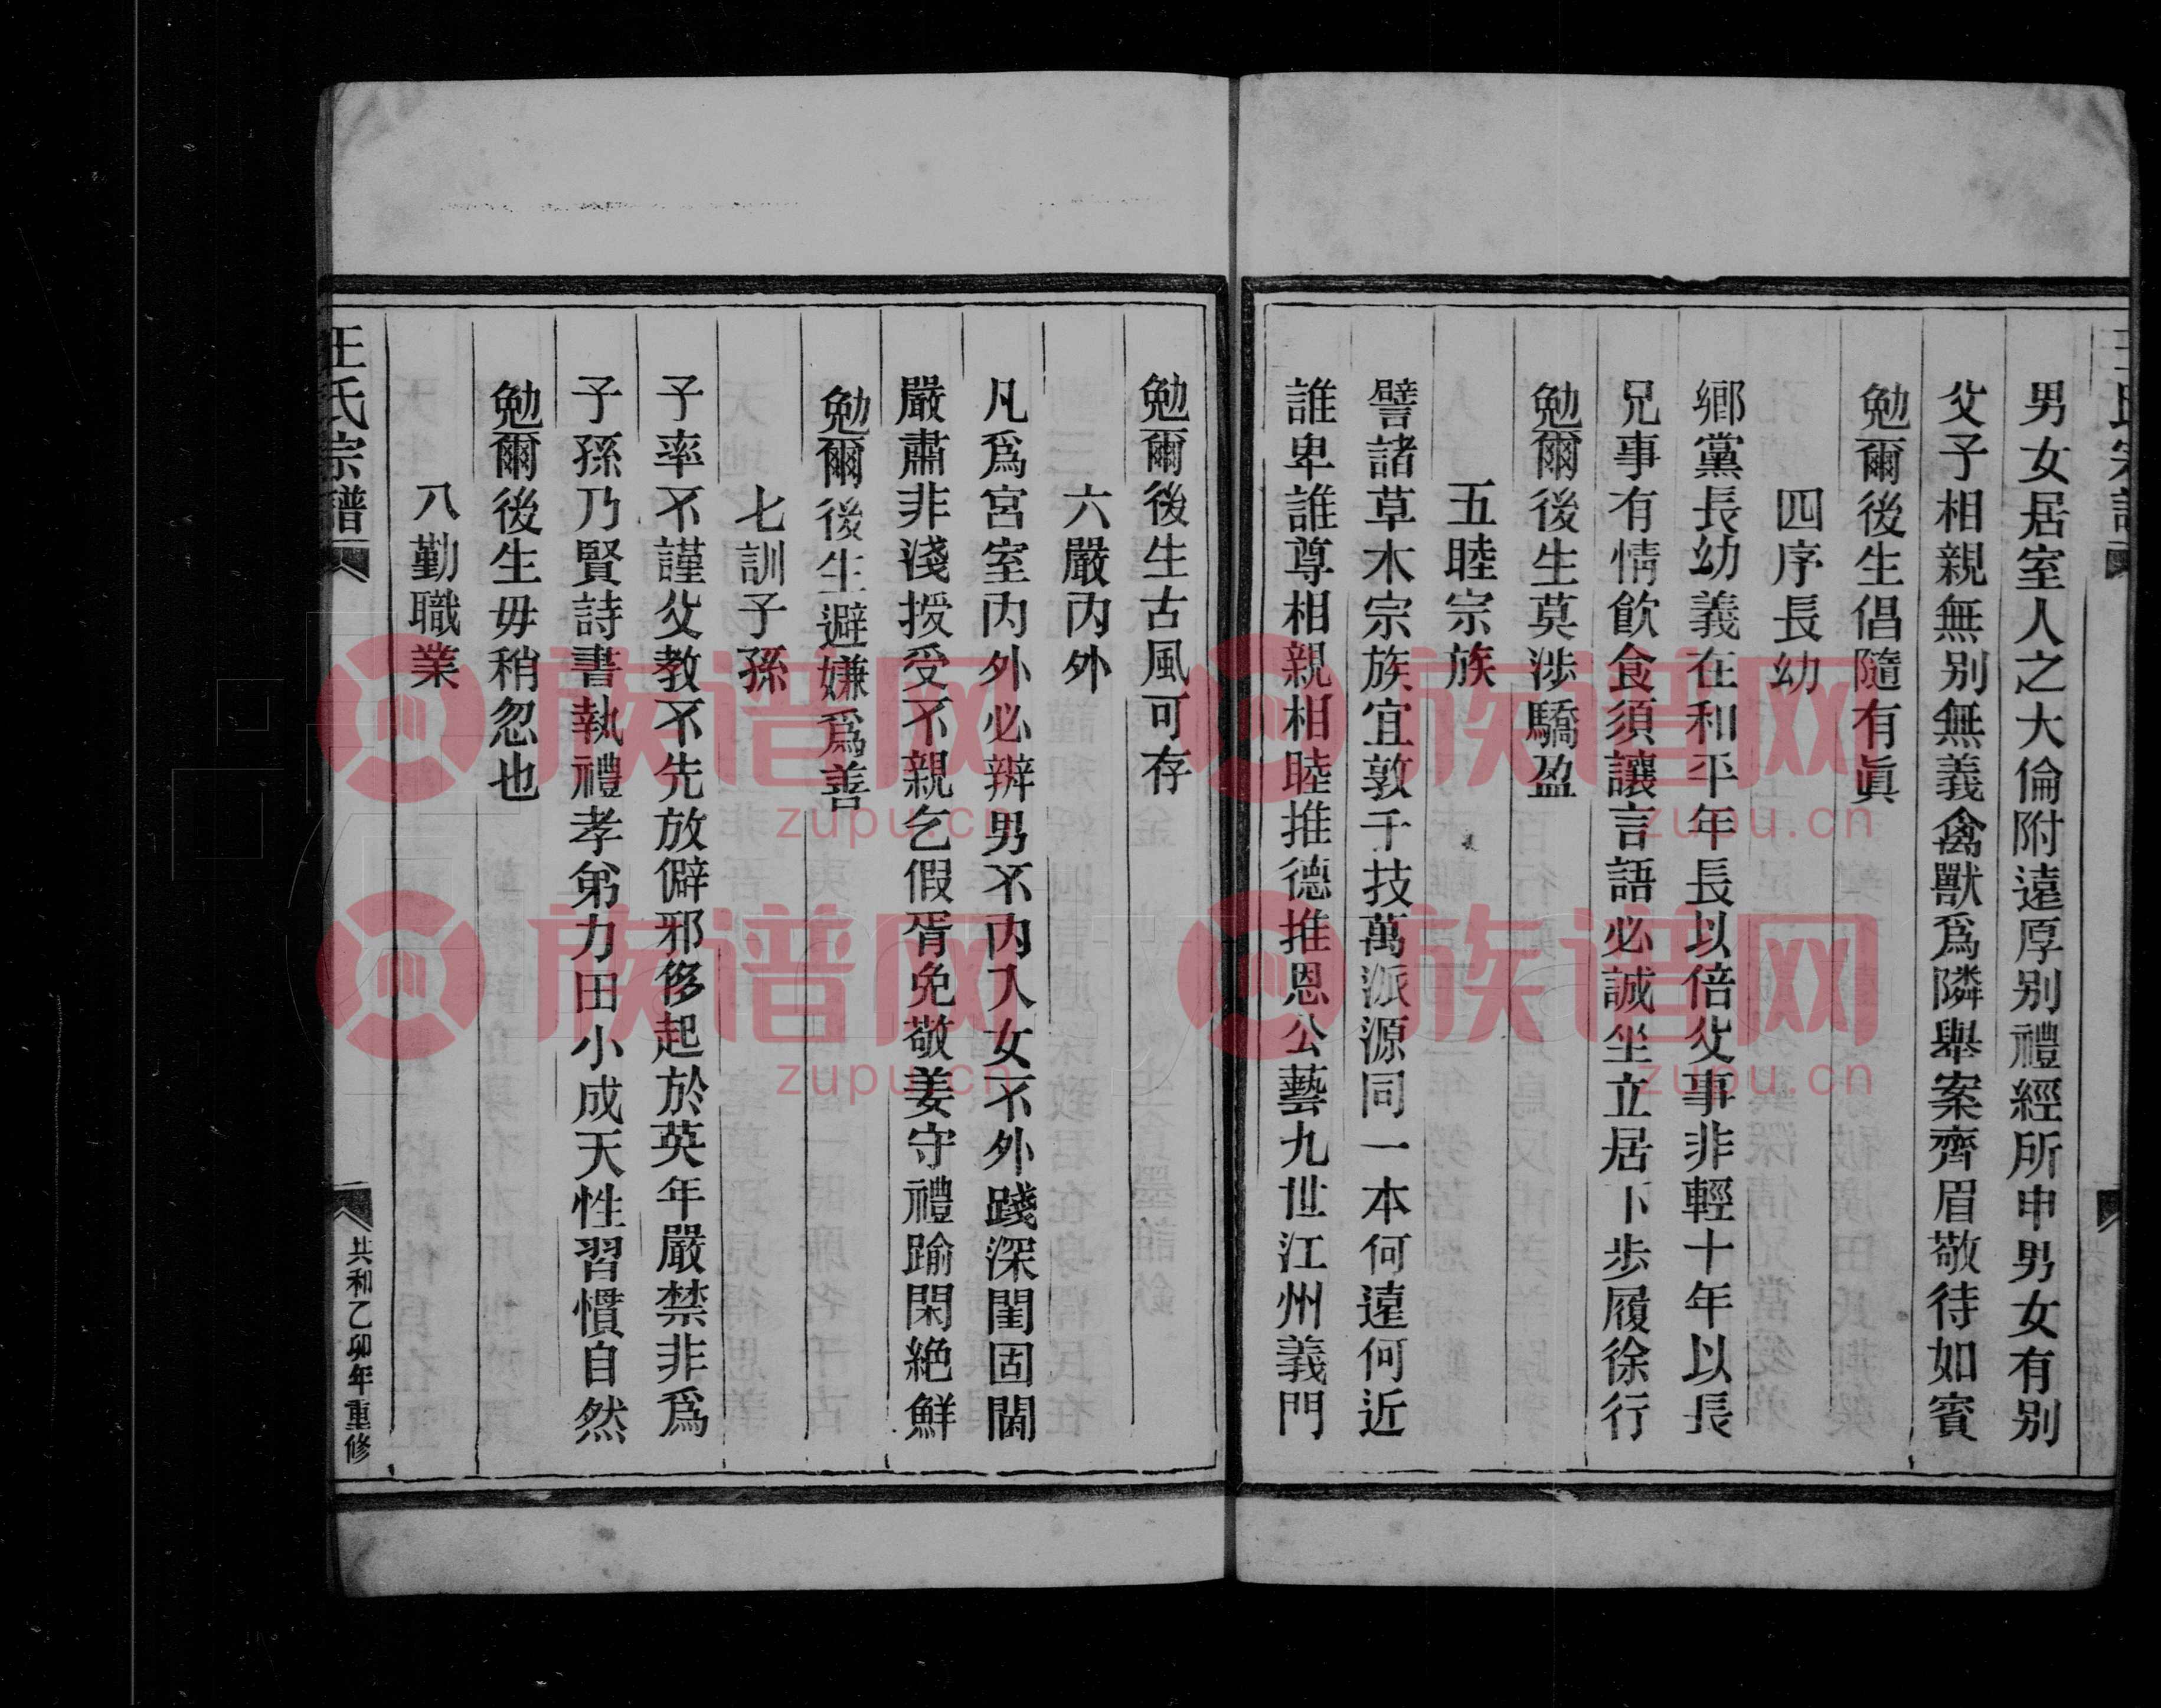 男女居室人之大倫附遠厚别禮經所申男女有别
父子相親無别無義禽獸爲隣舉案齊眉敬待如賓
勉爾後生倡隨有眞
四序長幼
鄉黨長幼義在和平年長以倍父事非輕十年以長
兄事有情飲食須讓言語必誠坐立居下步履徐行
勉爾後生莫涉驕盈
五睦宗族
譬諸草木宗族宜敦千技萬派源同一本何遠何近
誰卑誰尊相親相睦推德推恩公藝九世江州義門
勉爾後生古風可存
六嚴內外
凡爲宮室內外必辨男不內入女不外踐深閨固閫
嚴肅非淺授受不親乞假胥免敬姜守禮踰閑絶鮮
勉爾後生避嫌爲善
七訓子孫
子率不謹父教不先放僻邪侈起於英年嚴禁非爲
子孫乃賢詩書執禮孝弟力田小成天性習慣自然
勉爾後生毋稍忽也
八勤職業
王氏宗譜
共和乙卯年重修
族谱网
zupu.cn
族谱网
zupu.cn
族谱网
zupu.cn
族谱网
zupu.cn